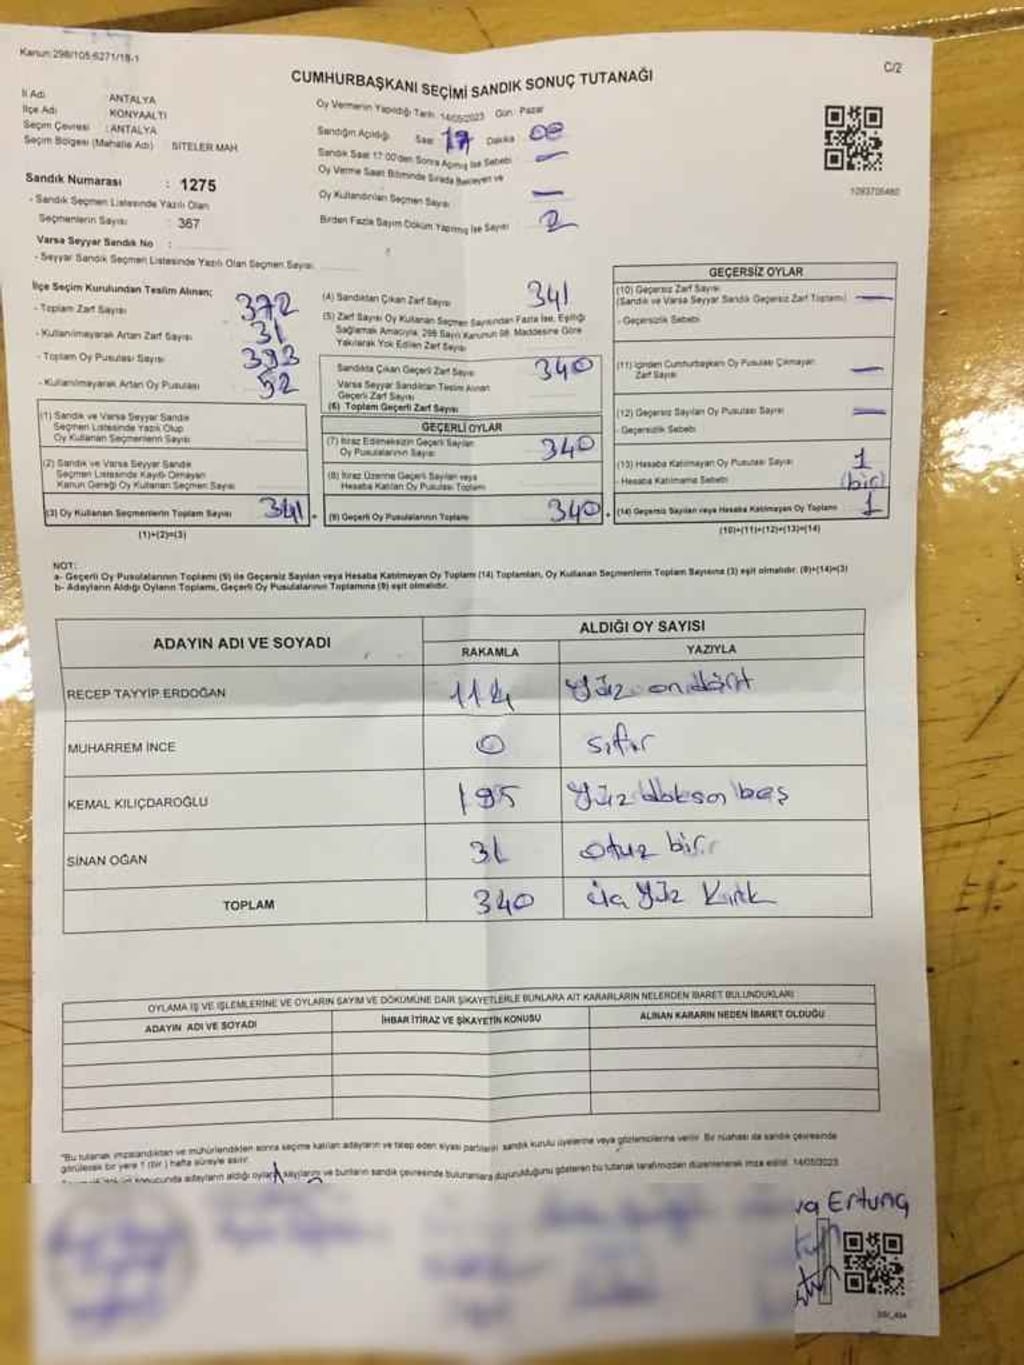 Kanun:298/105;6271/18-1
C/2
CUMHURBAŞKANI SEÇİMİ SANDIK SONUÇ TUTANAĞI
İl Adı : ANTALYA
İlçe Adı : KONYAALTI
Seçim Çevresi : ANTALYA
Seçim Bölgesi (Mahalle Adı) : SİTELER MAH.
Sandık Numarası : 1275
- Sandık Seçmen Listesinde Yazılı Olan
Seçmenlerin Sayısı : 367
Varsa Seyyar Sandık No :
- Seyyar Sandık Seçmen Listesinde Yazılı Olan Seçmen Sayısı
Oy Vermenin Yapıldığı Tarih: 14/05/2023 Gün: Pazar
Sandığın Açıldığı Saat 17 Dakika 00
Sandık Saat 17:00'den Sonra Açılmış İse Sebebi —
Oy Verme Saati Bitiminde Sırada Bekleyen ve
Oy Kullandırılan Seçmen Sayısı —
Birden Fazla Sayım Döküm Yapılmış İse Sayısı 2
1093705460
İlçe Seçim Kurulundan Teslim Alınan;
- Toplam Zarf Sayısı 372
- Kullanılmayarak Artan Zarf Sayısı 31
- Toplam Oy Pusulası Sayısı 393
- Kullanılmayarak Artan Oy Pusulası 52
(1) Sandık ve Varsa Seyyar Sandık
Seçmen Listesinde Yazılı Olup
Oy Kullanan Seçmenlerin Sayısı
(2) Sandık ve Varsa Seyyar Sandık
Seçmen Listesinde Kayıtlı Olmayan
Kanun Gereği Oy Kullanan Seçmen Sayısı
(3) Oy Kullanan Seçmenlerin Toplam Sayısı 341
(1)+(2)=(3)
(4) Sandıktan Çıkan Zarf Sayısı 341
(5) Zarf Sayısı Oy Kullanan Seçmen Sayısından Fazla İse, Eşitliği
Sağlamak Amacıyla, 298 Sayılı Kanunun 98. Maddesine Göre
Yakılarak Yok Edilen Zarf Sayısı
Sandıkta Çıkan Geçerli Zarf Sayısı 340
Varsa Seyyar Sandıktan Teslim Alınan
Geçerli Zarf Sayısı
(6) Toplam Geçerli Zarf Sayısı
GEÇERLİ OYLAR
(7) İtiraz Edilmeksizin Geçerli Sayılan
Oy Pusulalarının Sayısı 340
(8) İtiraz Üzerine Geçerli Sayılan veya
Hesaba Katılan Oy Pusulası Toplamı
(9) Geçerli Oy Pusulalarının Toplamı 340
GEÇERSİZ OYLAR
(10) Geçersiz Zarf Sayısı
(Sandık ve Varsa Seyyar Sandık Geçersiz Zarf Toplamı) —
- Geçersizlik Sebebi
(11) İçinden Cumhurbaşkanı Oy Pusulası Çıkmayan
Zarf Sayısı —
(12) Geçersiz Sayılan Oy Pusulası Sayısı —
- Geçersizlik Sebebi
(13) Hesaba Katılmayan Oy Pusulası Sayısı 1
- Hesaba Katılmama Sebebi (bir)
(14) Geçersiz Sayılan veya Hesaba Katılmayan Oy Toplamı 1
(10)+(11)+(12)+(13)=(14)
NOT:
a- Geçerli Oy Pusulalarının Toplamı (9) ile Geçersiz Sayılan veya Hesaba Katılmayan Oy Toplamı (14) Toplamları, Oy Kullanan Seçmenlerin Toplam Sayısına (3) eşit olmalıdır. (9)+(14)=(3)
b- Adayların Aldığı Oyların Toplamı, Geçerli Oy Pusulalarının Toplamına (9) eşit olmalıdır.
ADAYIN ADI VE SOYADI
ALDIĞI OY SAYISI
RAKAMLA YAZIYLA
RECEP TAYYİP ERDOĞAN 114 Yüz ondört
MUHARREM İNCE 0 sıfır
KEMAL KILIÇDAROĞLU 195 Yüz doksan beş
SİNAN OĞAN 31 otuz bir
TOPLAM 340 üç Yüz Kırk
OYLAMA İŞ VE İŞLEMLERİNE VE OYLARIN SAYIM VE DÖKÜMÜNE DAİR ŞİKAYETLERLE BUNLARA AİT KARARLARIN NELERDEN İBARET BULUNDUKLARI
ADAYIN ADI VE SOYADI İHBAR İTİRAZ VE ŞİKAYETİN KONUSU ALINAN KARARIN NEDEN İBARET OLDUĞU
"Bu tutanak imzalandıktan ve mühürlendikten sonra seçime katılan adayların ve talep eden siyasi partilerin sandık kurulu üyelerine veya gözlemcilerine verilir. Bir nüshası da sandık çevresinde
görülecek bir yere 1 (bir) hafta süreyle asılır.
sonucunda adayların aldığı oyların sayılarını ve bunların sandık çevresinde bulunanlara duyurulduğunu gösteren bu tutanak tarafımızdan düzenlenerek imza edildi. 14/05/2023
Ertunç